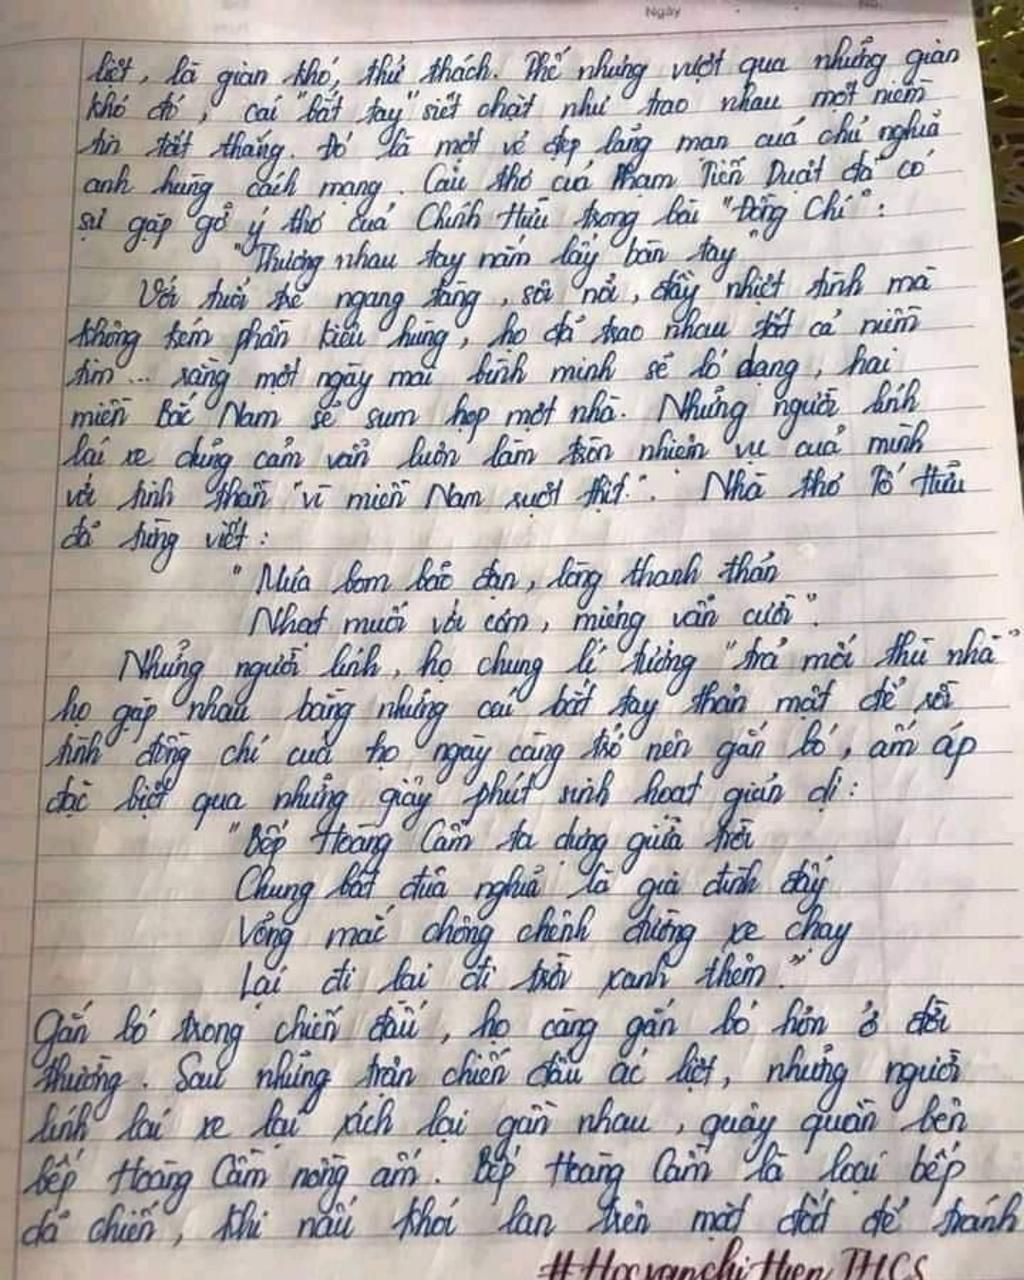 Ngày
No.
liệt, là gian khó, thử thách. Thế nhưng vượt qua những gian
khó đó, cái "bắt tay" siết chặt như trao nhau một niềm
tin tất thắng. Đó là một vẻ đẹp lãng mạn của chủ nghĩa
anh hùng cách mạng. Câu thơ của Phạm Tiến Duật đã có
sự gặp gỡ ý thơ của Chính Hữu trong bài "Đồng Chí":
"Thương nhau tay nắm lấy bàn tay"
Với tuổi trẻ ngang tàng, sôi nổi, đầy nhiệt tình mà
không kém phần kiêu hùng, họ đã trao nhau tất cả niềm
tim... rằng một ngày mai bình minh sẽ ló dạng, hai
miền Bắc Nam sẽ sum họp một nhà. Những người lính
lái xe dũng cảm vẫn luôn làm tròn nhiệm vụ của mình
với tinh thần "vì miền Nam ruột thịt". Nhà thơ Tố Hữu
đã từng viết:
"Mưa bom bão đạn, lòng thanh thản
Nhạt muối vơi cơm, miệng vẫn cười".
Những người lính, họ chung lí tưởng "trả mối thù nhà"
họ gặp nhau bằng những cái bắt tay thân mật để rồi
tình đồng chí của họ ngày càng trở nên gắn bó, ấm áp
đặc biệt qua những giây phút sinh hoạt giản dị:
"Bếp Hoàng Cầm ta dựng giữa trời
Chung bát đũa nghĩa là gia đình đấy
Võng mắc chông chênh đường xe chạy
Lại đi lại đi trời xanh thêm."
Gắn bó trong chiến đấu, họ càng gắn bó hơn ở đời
thường. Sau những trận chiến đấu ác liệt, những người
lính lái xe lại xích lại gần nhau, quây quần bên
bếp Hoàng Cầm nồng ấm. Bếp Hoàng Cầm là loại bếp
dã chiến, khi nấu khói lan trên mặt đất để tránh
#Hocvanchihien THCS